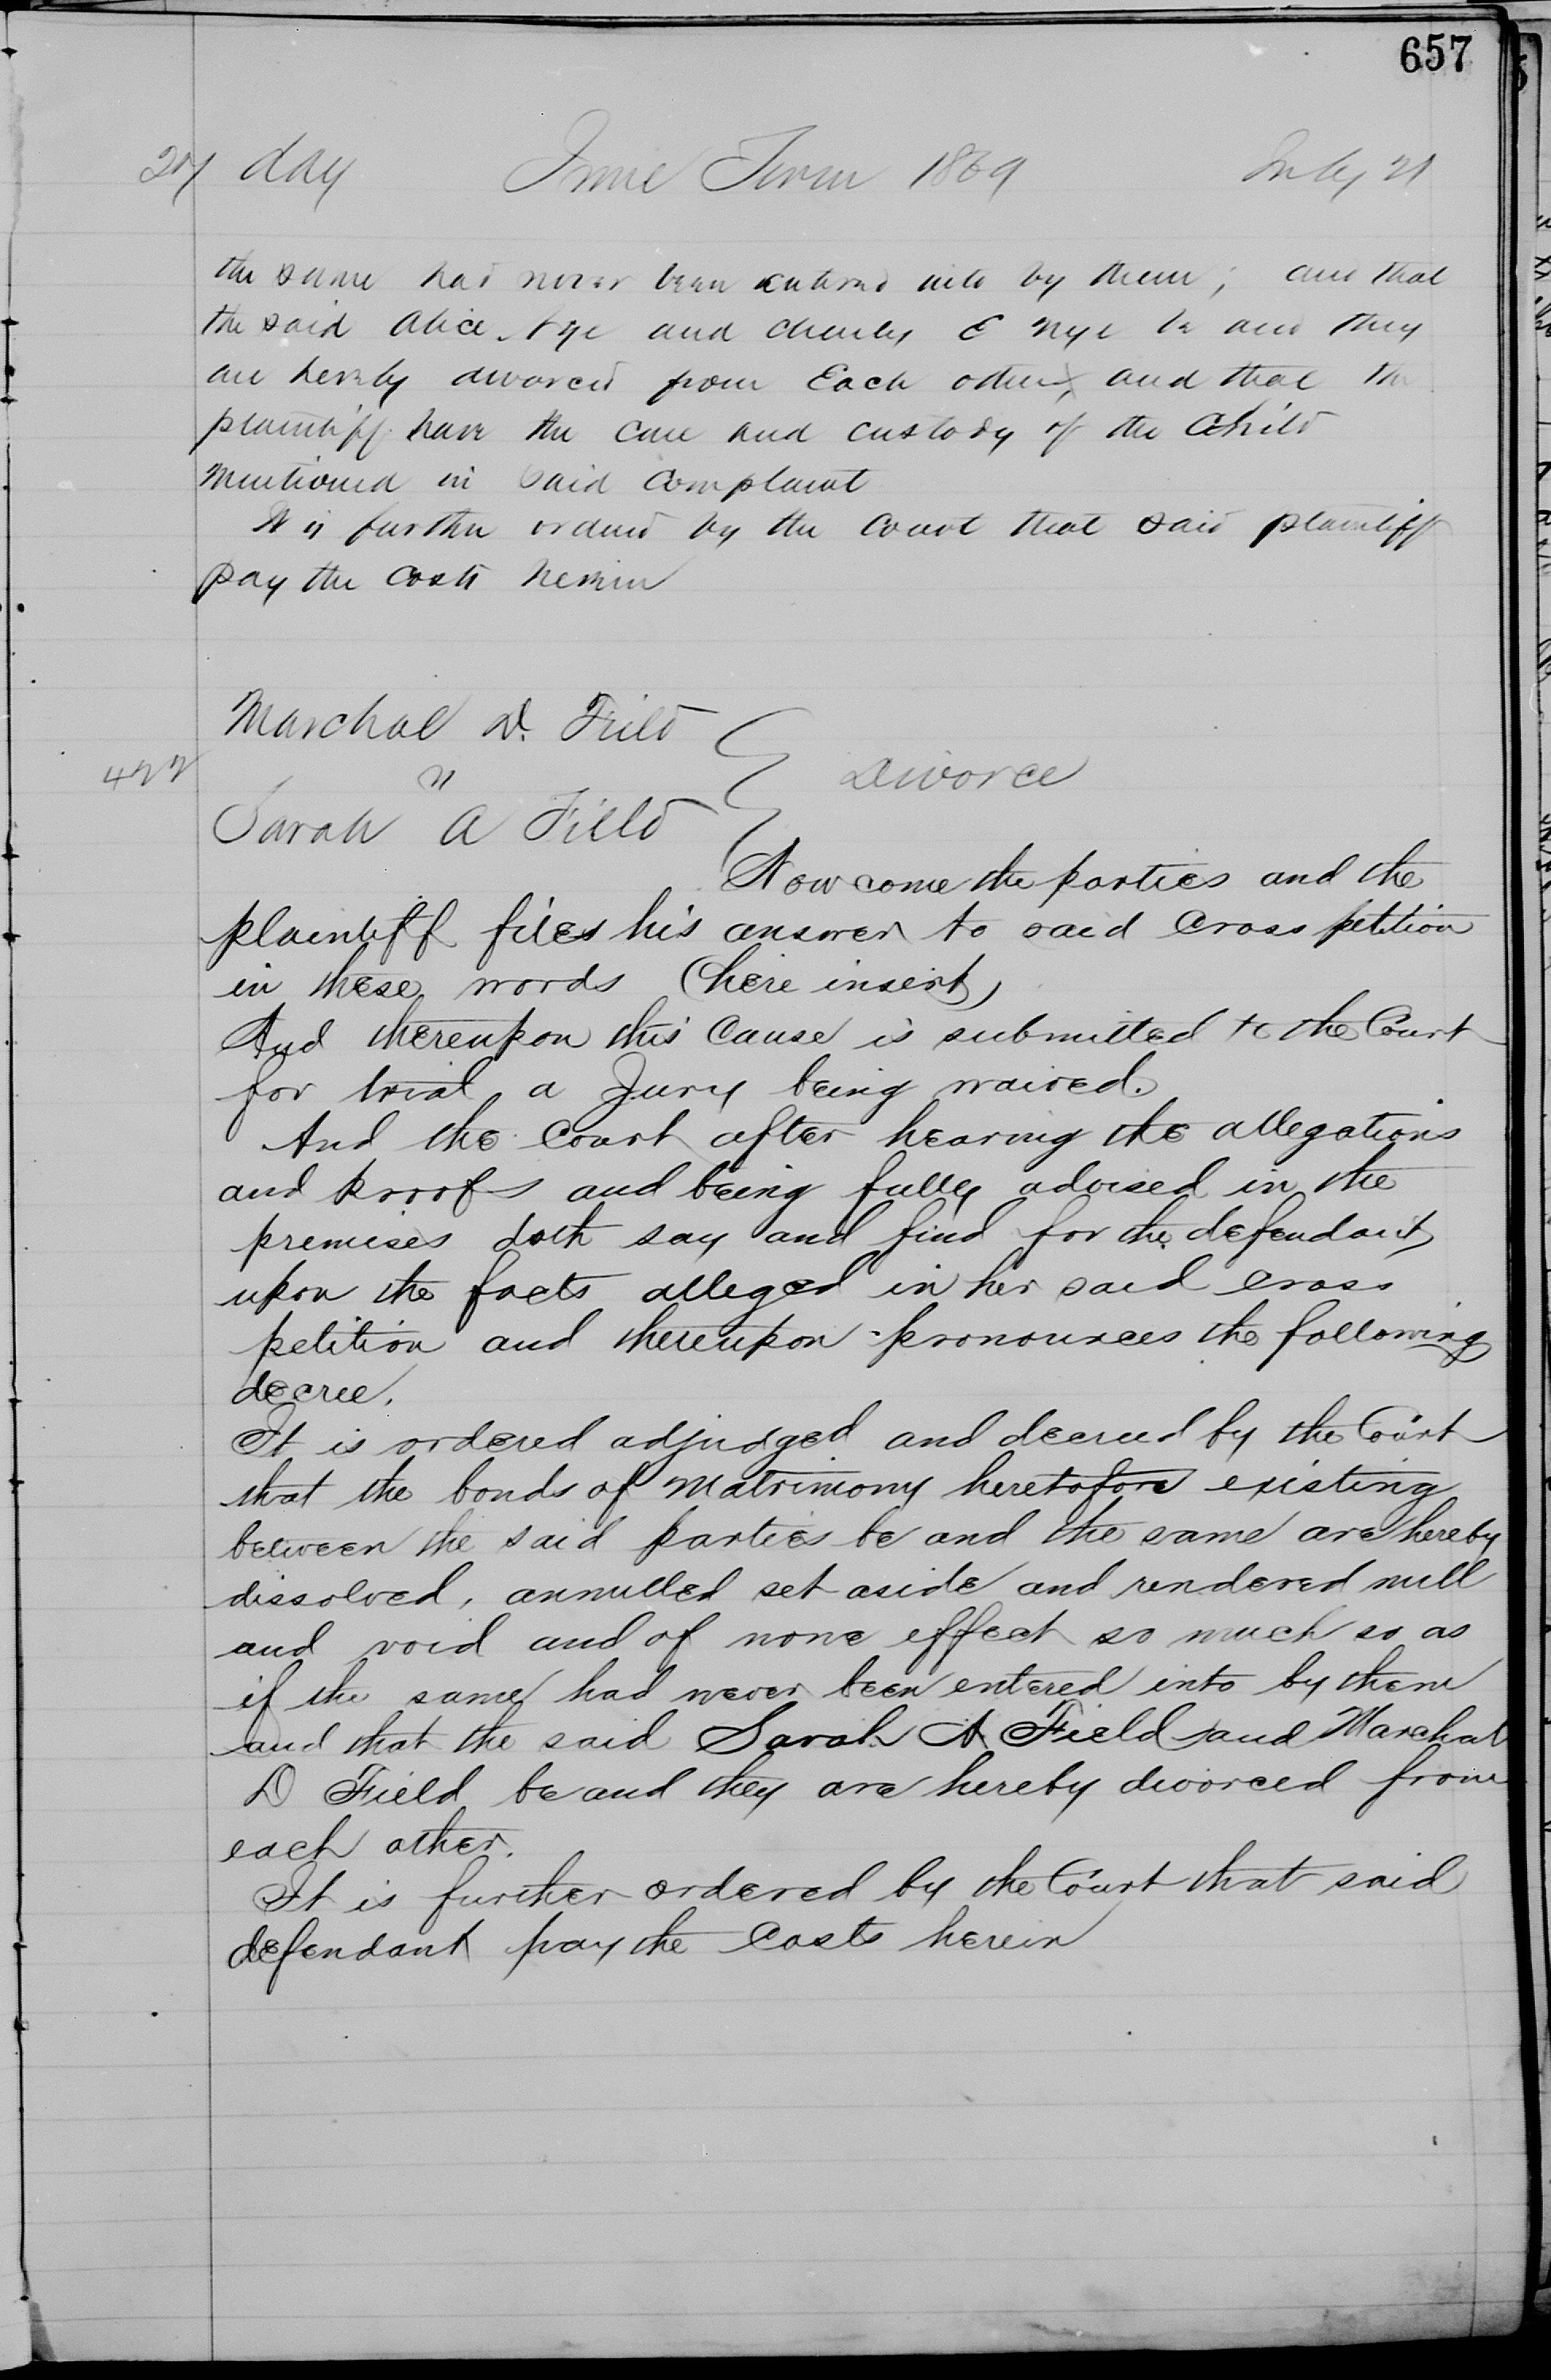 657
day June Term 1869 July 21
the same had never been entered into by them; and that
the said Alice Nye and Charles E Nye be and they
are hereby divorced from Each other, and that the
plaintiff have the care and custody of the Child
mentioned in said complaint
It is further ordered by the Court that said plaintiff
pay the costs herein
Marchal D. Field
422 " Divorce
Sarah A Field
Now come the parties and the
plaintiff files his answer to said Cross petition
in these words (here insert)
And thereupon this Cause is submitted to the Court
for trial a Jury being waived.
And the Court after hearing the allegations
and proofs and being fully advised in the
premises doth say and find for the defendant
upon the facts alleged in her said Cross
petition and thereupon pronounces the following
decree.
It is ordered adjudged and decreed by the Court
that the bonds of Matrimony heretofore existing
between the said parties be and the same are hereby
dissolved, annulled set aside and rendered null
and void and of none effect so much so as
if the same had never been entered into by them
and that the said Sarah A Field and Marchal
D Field be and they are hereby divorced from
each other.
It is further ordered by the Court that said
defendant pay the Costs herein